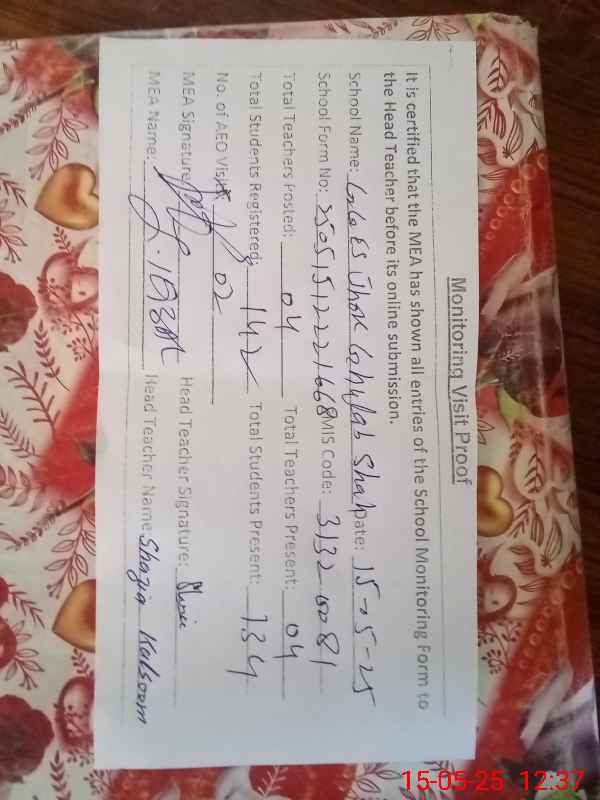 Monitoring Visit Proof
It is certified that the MEA has shown all entries of the School Monitoring Form to
the Head Teacher before its online submission.
School Name: ES Jhok Shah Date: 15-05-25
School Form No: 25051512221668 MIS Code:
Total Teachers Posted: 04 Total Teachers Present: 04
Total Students Registered: 142 Total Students Present: 134
No. of AEO Visit: 02
MEA Signature: Head Teacher Signature:
MEA Name: Head Teacher Name: Shazia Kalsoom
15-05-25 12:37